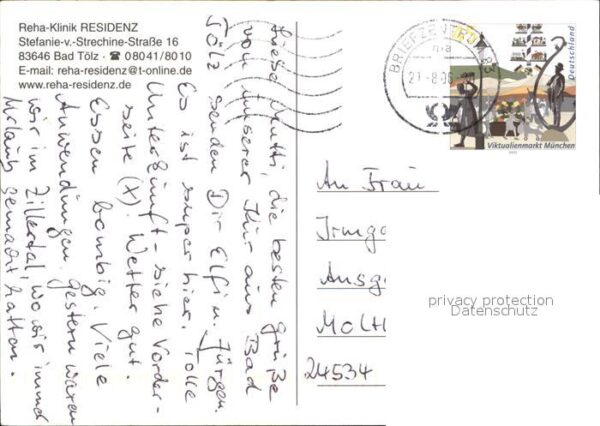 Reha-Klinik RESIDENZ
Stefanie-v.-Strechine-Straße 16
83646 Bad Tölz · ☎ 08041/8010
E-mail: reha-residenz@t-online.de
www.reha-residenz.de
Liebe Mutti, die besten Grüße
von unserer Kur aus Bad
Tölz senden Dir Elfi u. Jürgen.
Es ist super hier. Tolle
Unterkunft - siehe Vorder-
seite (X). Wetter gut.
Essen bombig. Viele
Anwendungen. Gestern waren
wir im Zillertal, wo wir immer
Urlaub gemacht hatten.
BRIEFZENTRUM 83
Deutschland
Viktualienmarkt München
An Frau
Irmga
Ausg
Molt
24534
privacy protection
Datenschutz